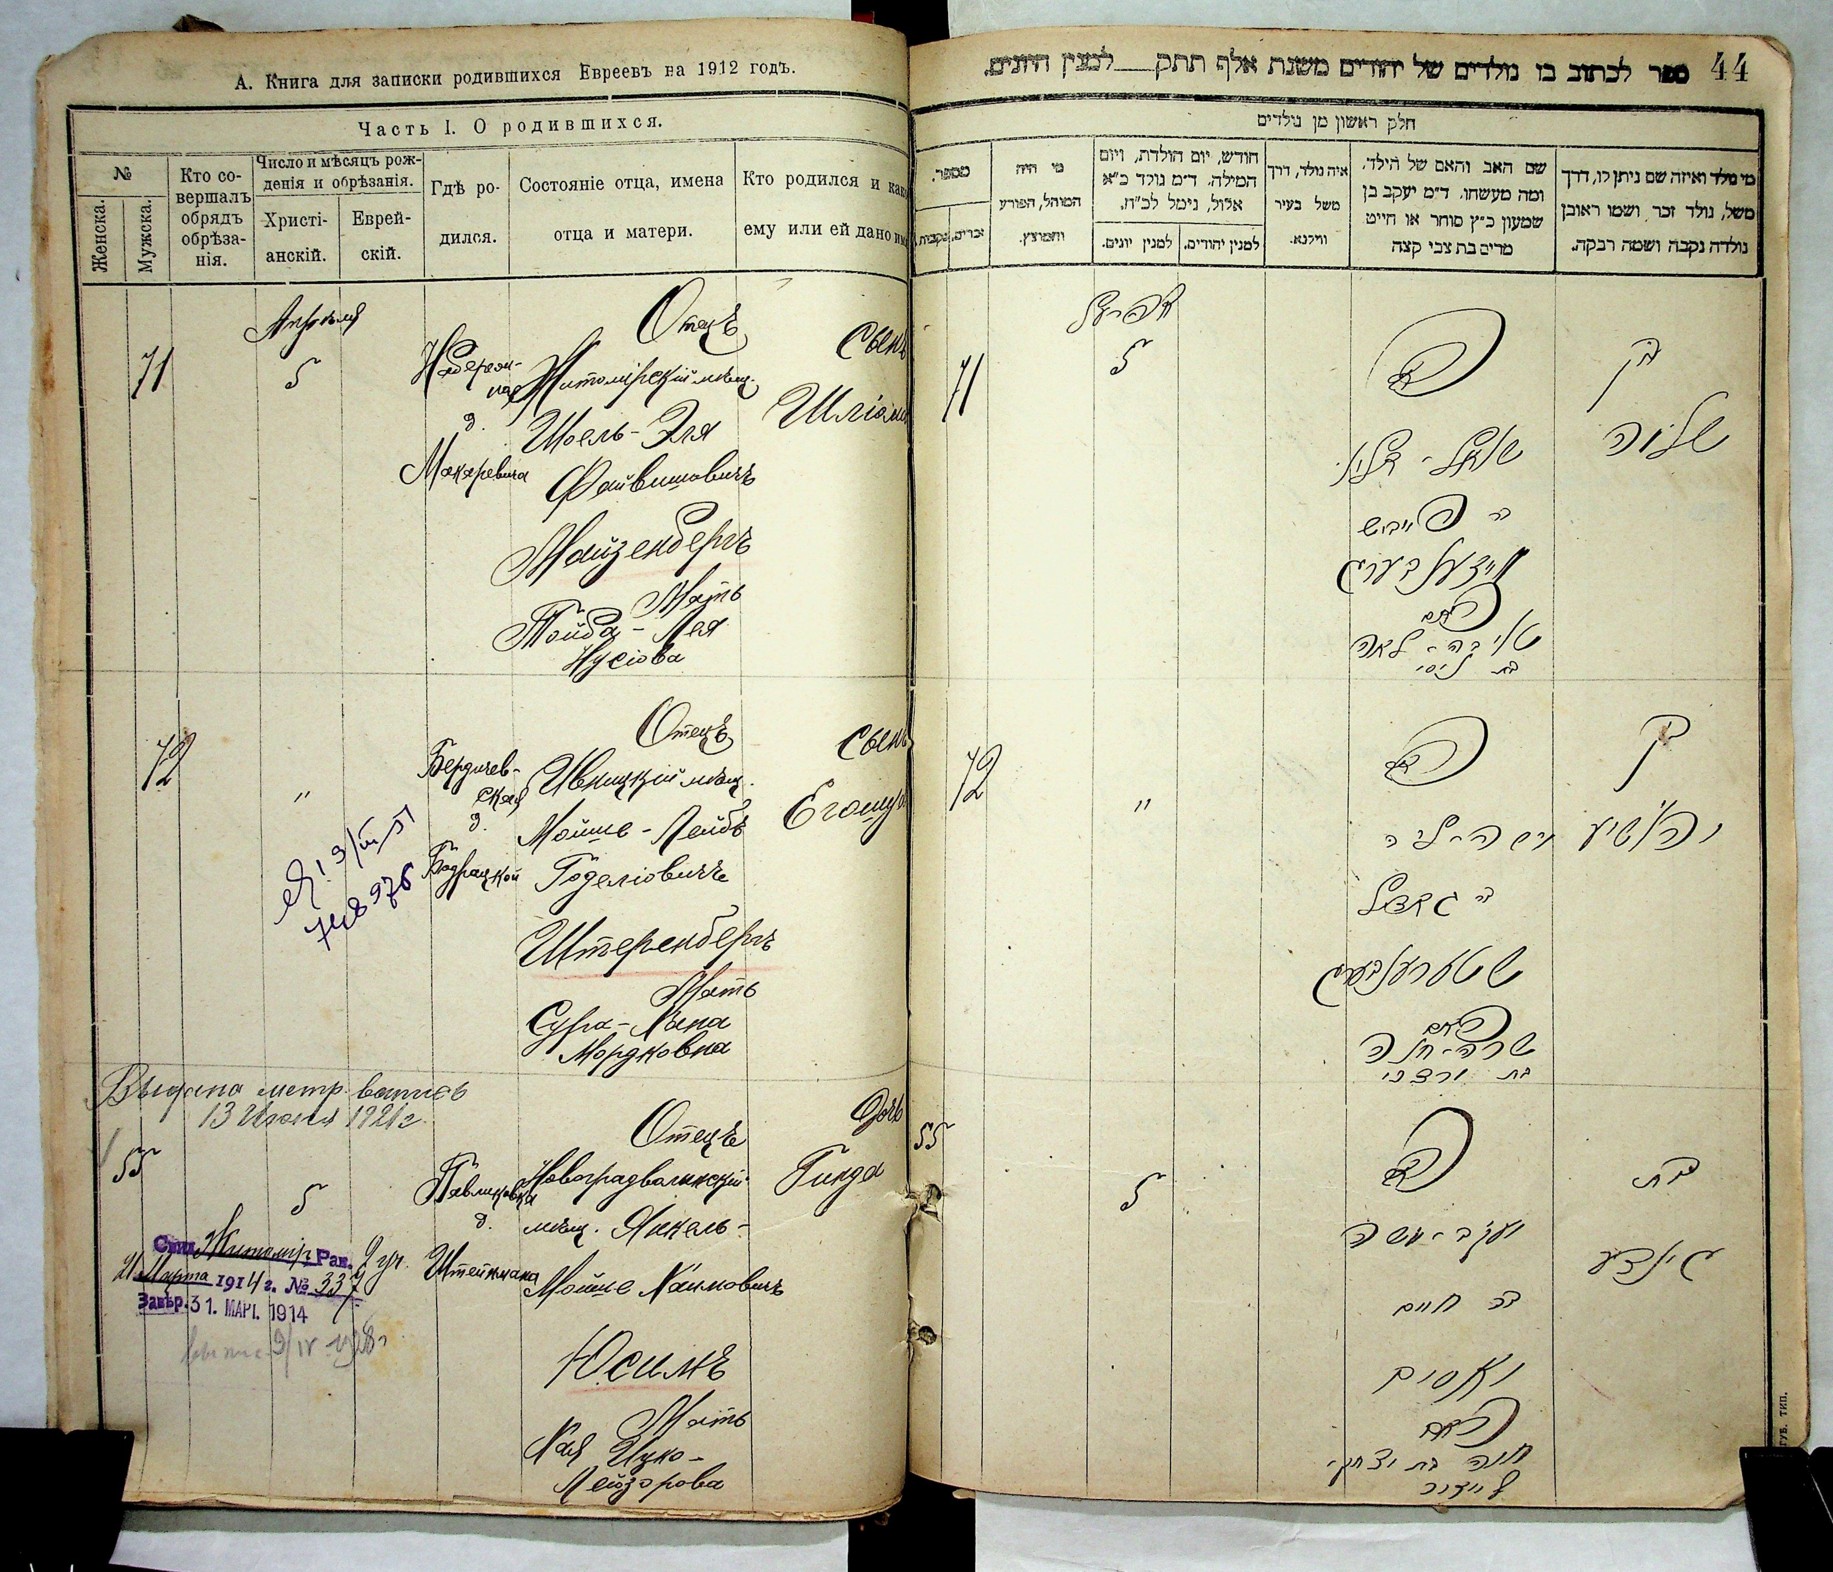 А. Книга для записки родившихся Евреевъ на 1912 годъ.
Часть I. О родившихся.
№
Женска.
Мужска.
Кто со-
вершалъ
обрядъ
обрѣза-
нія.
Число и мѣсяцъ рож-
денія и обрѣзанія.
Христі-
анскій.
Еврей-
скій.
Гдѣ ро-
дился.
Состояніе отца, имена
отца и матери.
Кто родился и како
ему или ей дано им
Апрѣля
71
5
Отецъ
Житомірскій мѣщ.
Шоель-Эля
Файвишовичъ
Майзенбергъ
Мать
Тойба-Лея
Нусіова
д.
Макаревича
Сынъ
Шліома
72
"
Бердичев-
ская
д.
Бодрацкой
Отецъ
Ивницкій мѣщ.
Мойше-Лейбъ
Годеліовичъ
Штеренбергъ
Мать
Сура-Хана
Мордковна
Сынъ
Егошуа
976
Выдана метр. выпись
13 Июня 1921г.
55
5
Павликовка
д.
Штейнмана
Отецъ
Новоградволынскій
мѣщ. Янкель-
Мойше Хаимовичъ
Юсимъ
Мать
Хая Ицко-
Лейзорова
Дочь
Гинда
Свид. Житомір Рав. 2 уч.
21 Марта 1914 г. № 337
Завѣр. 31. МАРТ. 1914
9/IV 1928г
44
ספר לכתוב בו נולדים של יהודים משנת אלף תתק___למנין היונים.
חלק ראשון מן נולדים
מספר.
זכרים.
נקבות.
מי היה
המוהל, הפורע
והמוצץ.
חודש, יום הולדת, ויום
המילה. ד״מ נולד כ״א
אלול, נימל לכ״ח.
למנין יונים.
למנין יהודים.
איה נולד, דרך
משל בעיר
ווילנא.
שם האב והאם של הילד,
ומה מעשהו. ד״מ יעקב בן
שמעון כ״ץ סוחר או חייט
מרים בת צבי קצה
מי נולד ואיזה שם ניתן לו, דרך
משל, נולד זכר, ושמו ראובן
נולדה נקבה ושמה רבקה.
אפריעל
71
5
האב
ר׳ פייביש
מייזענבערג
האם
טויבה-לאה
בת ניסי
בן
שלמה
72
"
האב
משה-ליב
שטערענבערג
האם
שרה-חנה
בת מרדכי
בן
יהושע
55
5
האב
יעקב-משה
בר חיים
יאסים
האם
חיה בת יצחק-
לייזור
בת
גינדע
ГУБ. ТИП.